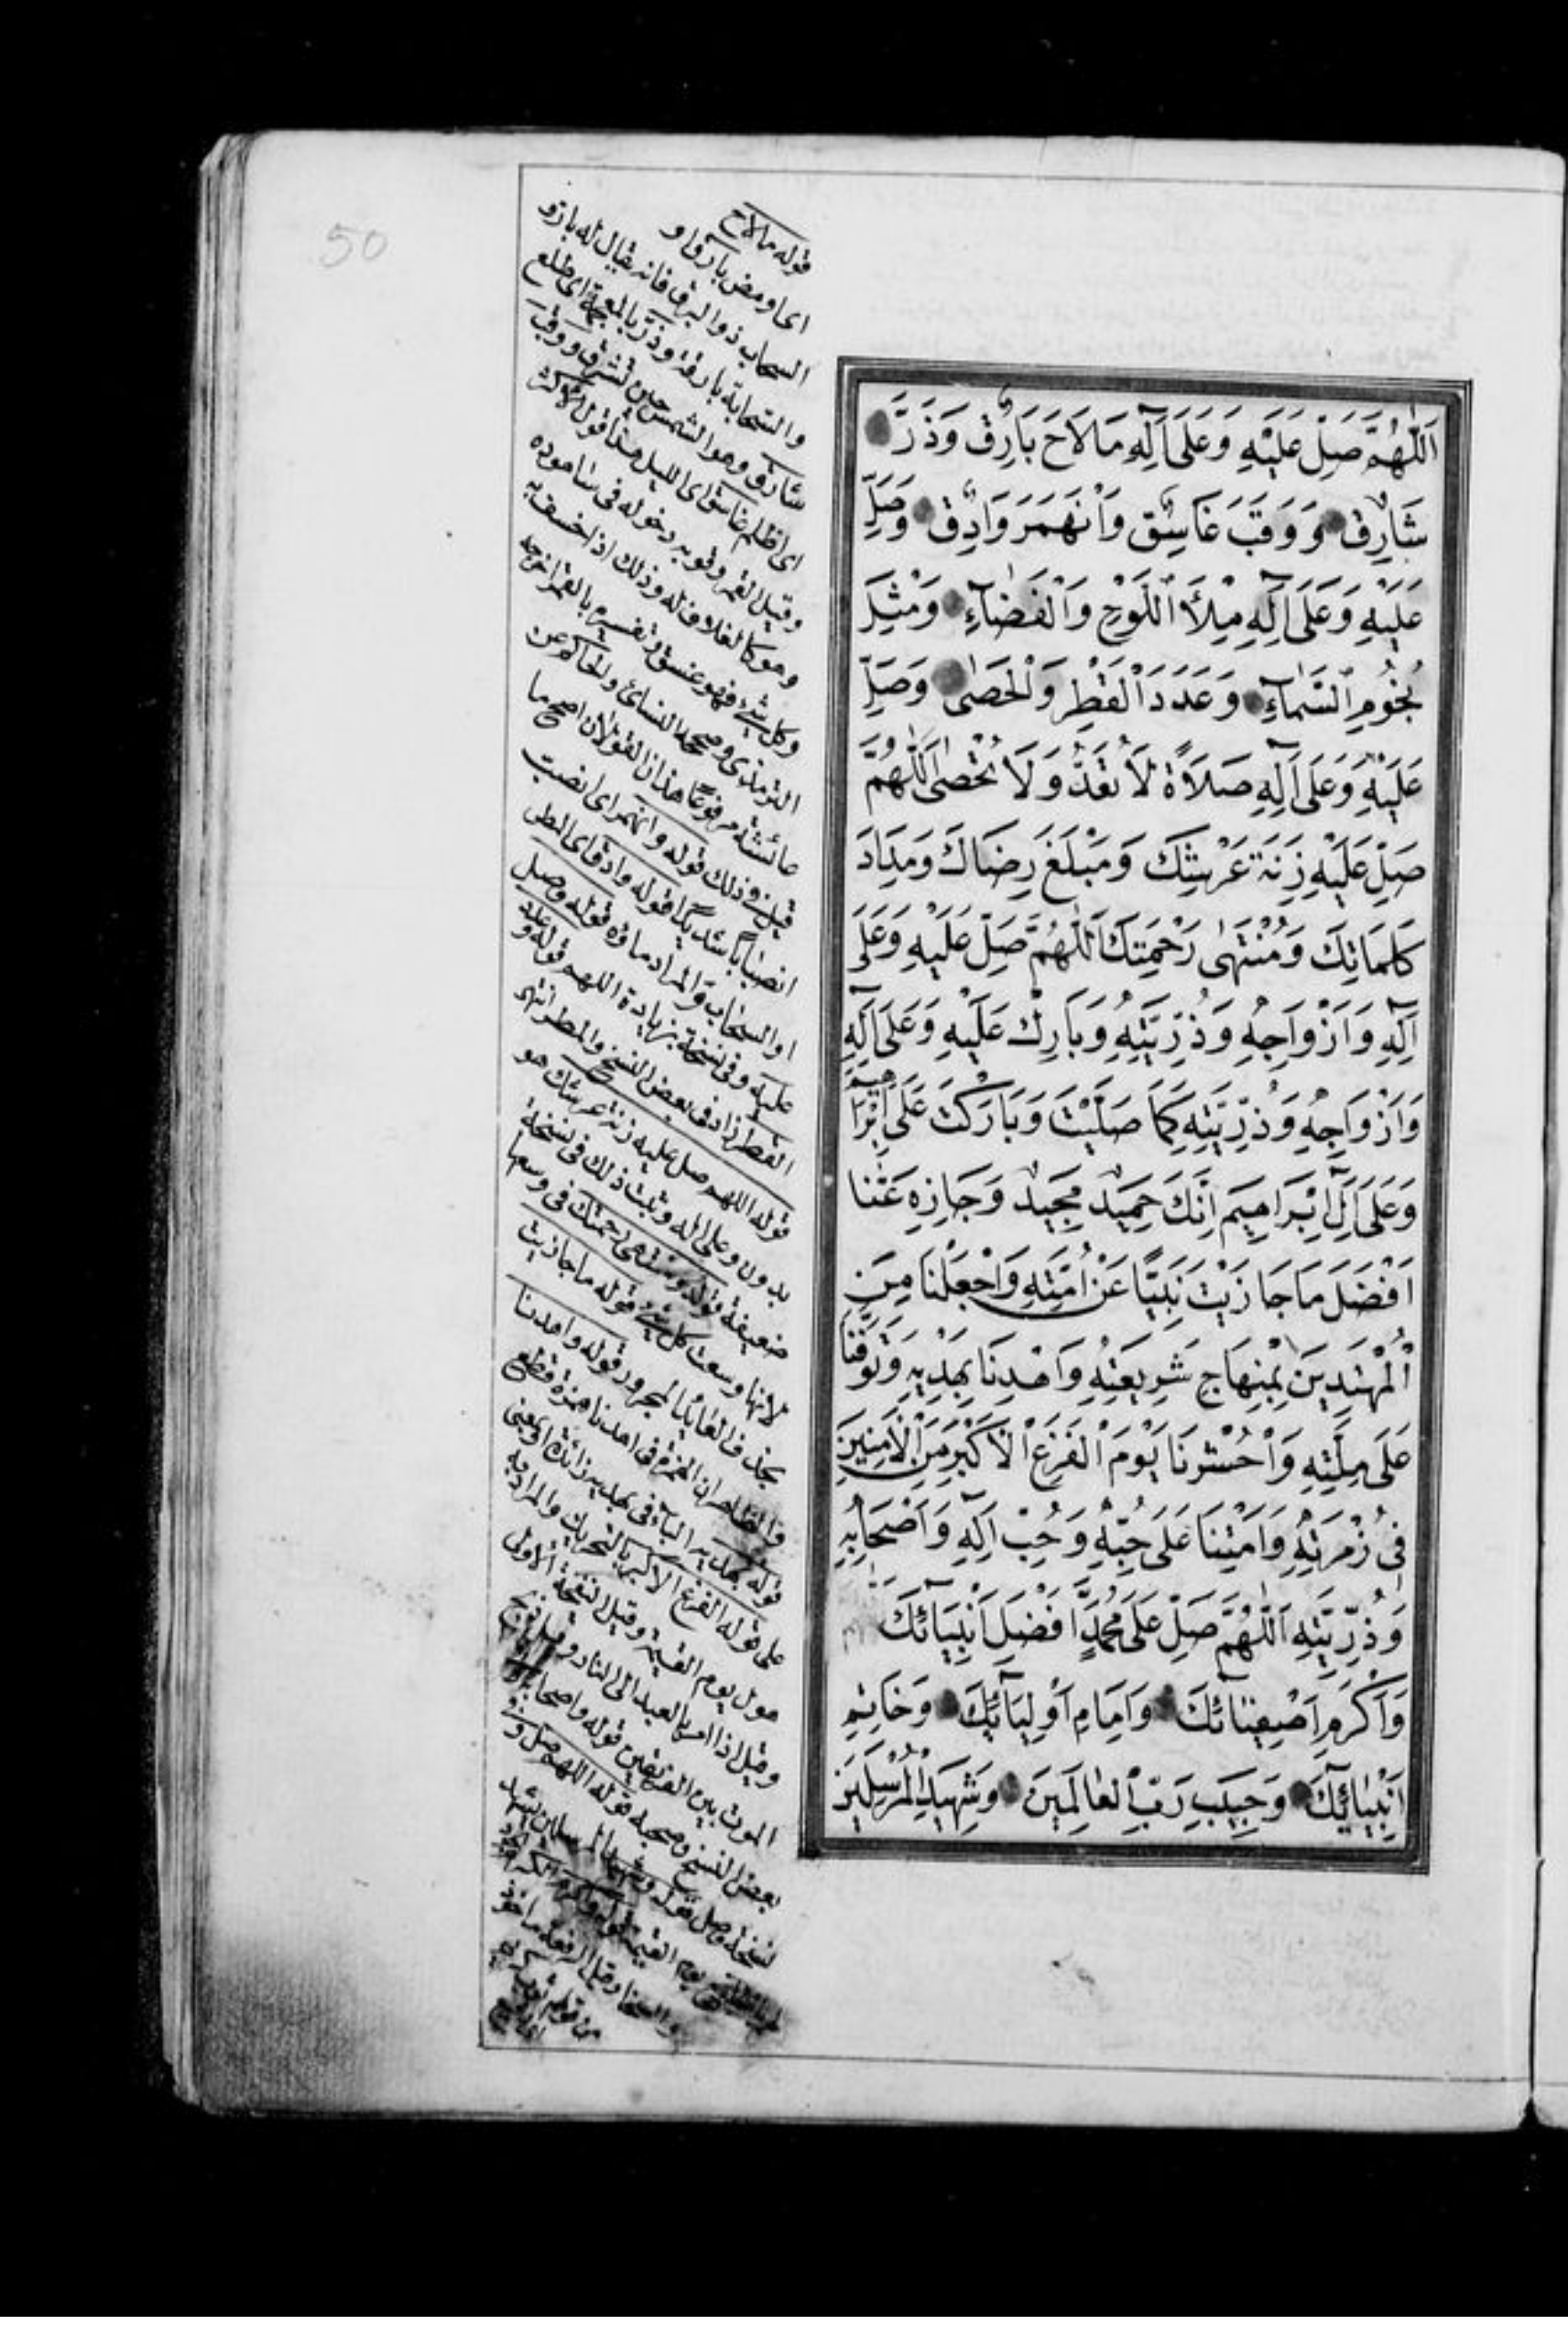 اَللّٰهُمَّ صَلِّ عَلَيْهِ وَعَلَى آلِهِ مَا لَاحَ بَارِقٌ وَذَرَّ
شَارِقٌ وَوَقَبَ غَاسِقٌ وَانْهَمَرَ وَادِقٌ وَصَلِّ
عَلَيْهِ وَعَلَى آلِهِ مِلْأَ اللَّوْحِ وَالْفَضَاءِ وَمِثْلَ
نُجُومِ السَّمَاءِ وَعَدَدَ الْقَطْرِ وَالْحَصٰى وَصَلِّ
عَلَيْهِ وَعَلَى آلِهِ صَلَاةً لَا تُعَدُّ وَلَا تُحْصٰى اَللّٰهُمَّ
صَلِّ عَلَيْهِ زِنَةَ عَرْشِكَ وَمَبْلَغَ رِضَاكَ وَمِدَادَ
كَلِمَاتِكَ وَمُنْتَهٰى رَحْمَتِكَ اَللّٰهُمَّ صَلِّ عَلَيْهِ وَعَلَى
آلِهِ وَاَزْوَاجِهِ وَذُرِّيَّتِهِ وَبَارِكْ عَلَيْهِ وَعَلَى آلِهِ
وَاَزْوَاجِهِ وَذُرِّيَّتِهِ كَمَا صَلَّيْتَ وَبَارَكْتَ عَلَى اِبْرَاهِيمَ
وَعَلَى آلِ اِبْرَاهِيمَ اِنَّكَ حَمِيدٌ مَجِيدٌ وَجَازِهِ عَنَّا
اَفْضَلَ مَا جَازَيْتَ نَبِيًّا عَنْ اُمَّتِهِ وَاجْعَلْنَا مِنَ
الْمُهْتَدِينَ بِمِنْهَاجِ شَرِيعَتِهِ وَاهْدِنَا بِهَدْيِهِ وَتَوَفَّنَا
عَلَى مِلَّتِهِ وَاحْشُرْنَا يَوْمَ الْفَزَعِ الْاَكْبَرِ مِنَ الْآمِنِينَ
فِى زُمْرَتِهِ وَاَمِتْنَا عَلَى حُبِّهِ وَحُبِّ آلِهِ وَاَصْحَابِهِ
وَذُرِّيَّتِهِ اَللّٰهُمَّ صَلِّ عَلَى مُحَمَّدٍ اَفْضَلِ اَنْبِيَائِكَ
وَاَكْرَمِ اَصْفِيَائِكَ وَاِمَامِ اَوْلِيَائِكَ وَخَاتَمِ
اَنْبِيَائِكَ وَحَبِيبِ رَبِّ الْعَالَمِينَ وَشَهِيدِ الْمُرْسَلِينَ
50
قوله ما لاح
اى اومض بارق او
السحاب ذو البرق فانه يقال له بارق
والسحابة بارقة وذر بالمعجمة اى طلع
شارق وهو الشمس حين تشرق ووقب
اى اظلم غاسق اى الليل هذا قول الاكثر
وقيل القمر وقوبه دخوله فى ساهوره
وهو كالغلاف له وذلك اذا خسف به
وكل شئ فهو غسق وتفسيره بالقمر اخرجه
الترمذى وصححه النسائى والحاكم عن
عائشة مرفوعا هذان القولان اصح ما
قيل فى ذلك قوله وانهمر اى انصب
انصبابا شديدا قوله وادق اى المطر
او السحاب والمراد ماؤه قوله وصل
عليه وفى نسخة بزيادة اللهم قوله وعدد
القطر زاد فى بعض النسخ والمطر انتهى
قوله اللهم صل عليه زنة عرشك هو
بدون وعلى اله وثبت ذلك فى نسخة
ضعيفة قوله ومنتهى رحمتك فى وسعها
لانها وسعت كل شئ قوله ما جازيت
بحذف العائد المجرور قوله واهدنا
والظاهر ان الهمزة فى اهدنا همزة قطع
قوله بهديه الباء فى بهديه زائدة او بمعنى
على قوله الفزع الاكبر بالتحريك والمراد به
هول يوم القيمة وقيل النفخة الاولى
وقيل اذا امر بالعبد الى النار وقيل ذبح
الموت بين الفريقين قوله واصحابه
بعض النسخ وصحبه قوله اللهم صل